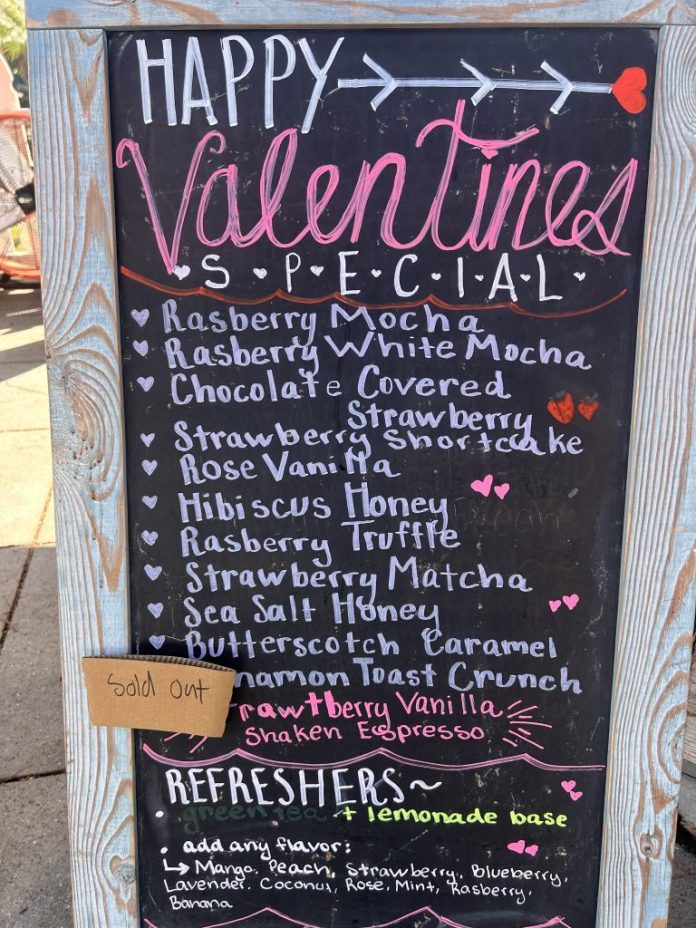 HAPPY
Valentines
S P E C I A L
Rasberry Mocha
Rasberry White Mocha
Chocolate Covered
Strawberry
Strawberry Shortcake
Rose Vanilla
Hibiscus Honey
Rasberry Truffle
Strawberry Matcha
Sea Salt Honey
Butterscotch Caramel
Sold Out
namon Toast Crunch
rawtberry Vanilla
Shaken Espresso
REFRESHERS~
green tea + lemonade base
add any flavor:
Mango, Peach, Strawberry, Blueberry,
Lavender, Coconut, Rose, Mint, Rasberry,
Banana